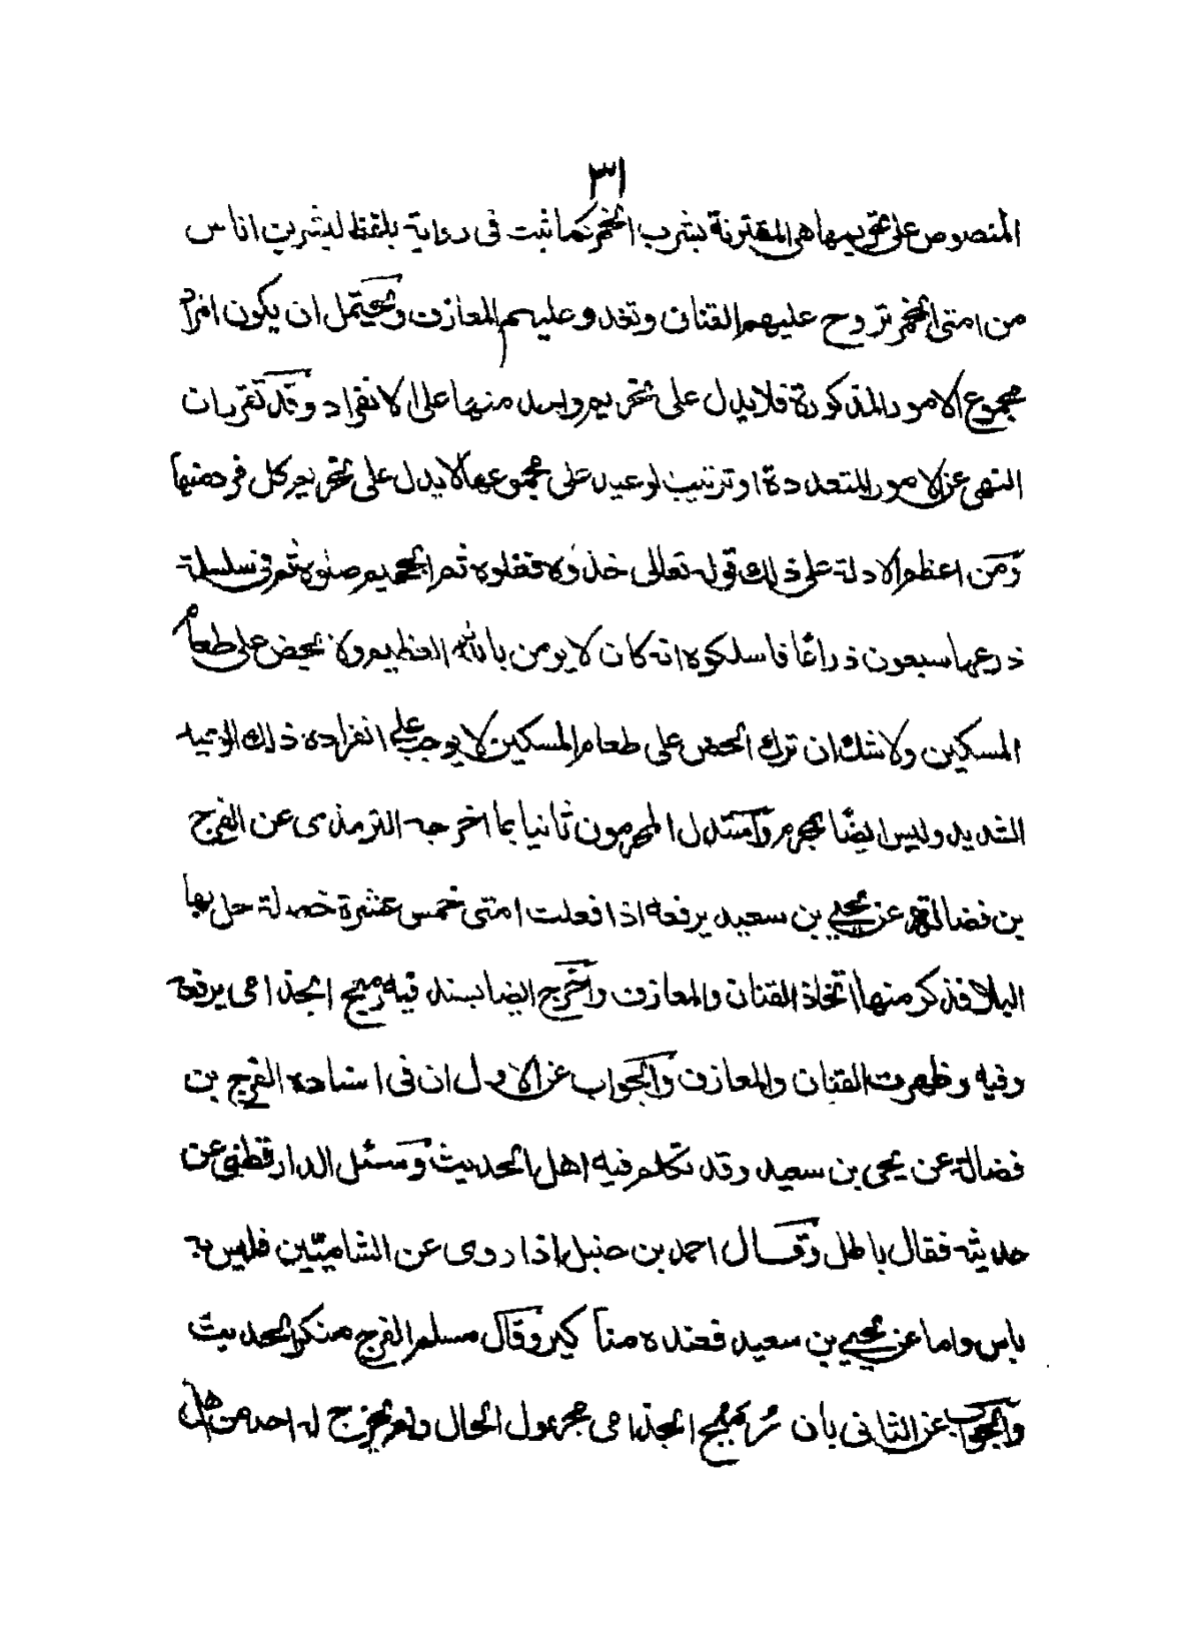 ٣١
المنصوص على تحريمها هى المقترنة بشرب الخمر كما ثبت فى رواية بلفظ ليشربن اناس
من امتى الخمر تروح عليهم القنان وتغدو عليهم المعازف ويحتمل ان يكون المراد
مجموع الامور المذكورة فلا يدل على تحريم واحد منها على الانفراد وقد تقرر ان
النهى عن الامور المتعددة او ترتيب الوعيد على مجموعها لا يدل على تحريم كل فرد منها
ومن اعظم الادلة على ذلك قوله تعالى خذوه فغلوه ثم الجحيم صلوه ثم فى سلسلة
ذرعها سبعون ذراعًا فاسلكوه انه كان لا يومن بالله العظيم ولا يحض على طعام
المسكين ولا شك ان ترك الحض على طعام المسكين لا يوجب على انفراده ذلك الوعيد
الشديد وليس ايضًا بمحرم واستدل المحرمون ثانيا بما اخرجه الترمذى عن الفرج
بن فضالة عن يحيى بن سعيد يرفعه اذا فعلت امتى خمس عشرة خصلة حل بها
البلا فذكر منها اتخاذ القنان والمعازف واخرج ايضا بسند فيه رميح الجذامى يرفعه
وفيه وظهرت القنان والمعازف والجواب عن الاول ان فى اسناده الفرج بن
فضالة عن يحى بن سعيد وقد تكلم فيه اهل الحديث وسئل الدارقطنى عن
حديثه فقال باطل وقال احمد بن حنبل اذا روى عن الشاميّين فليس به
باس واما عن يحيى بن سعيد فعنده مناكير وقال مسلم الفرج منكر الحديث
والجواب عن الثانى بان رُميح الجذامى مجهول الحال ولم يخرج له احد من اهل